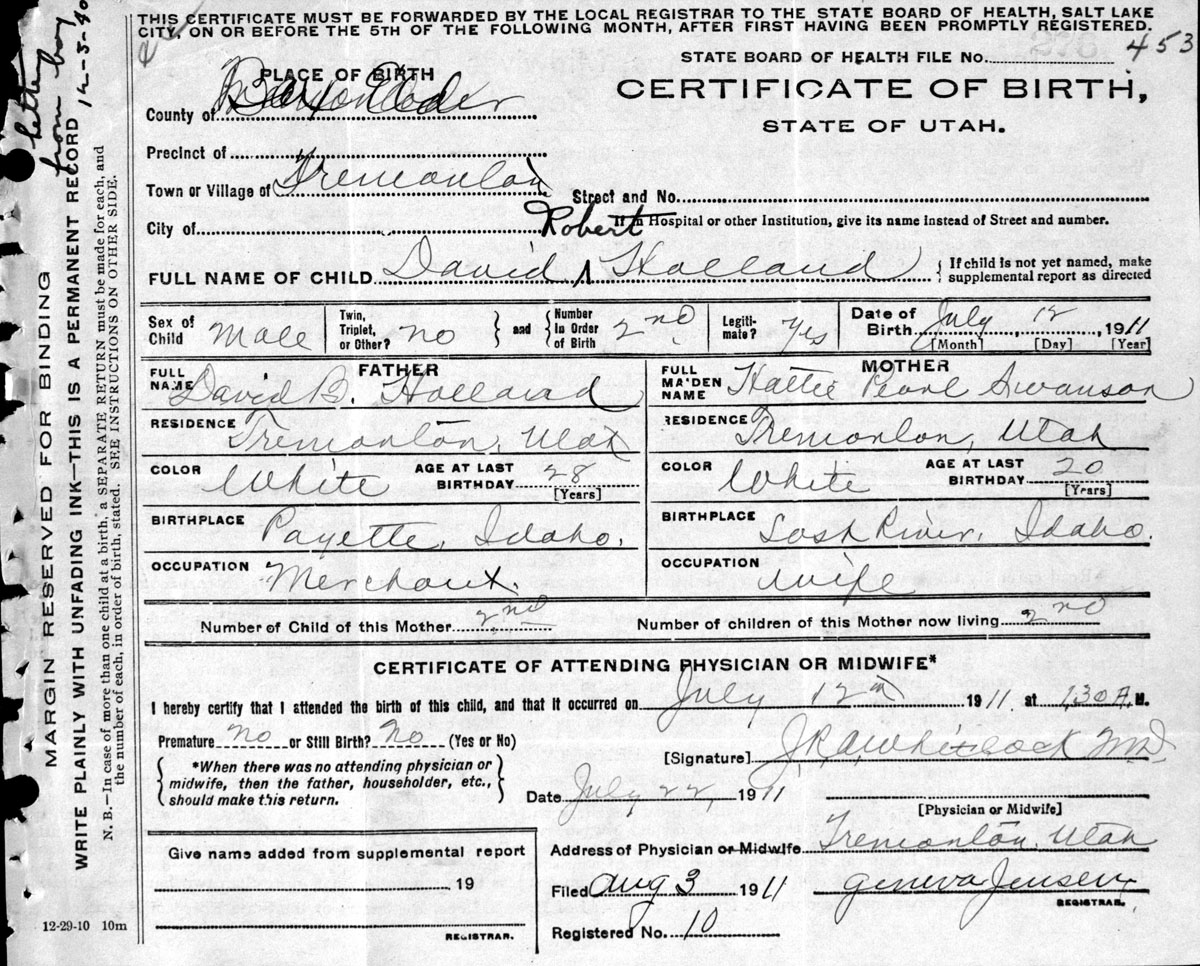 THIS CERTIFICATE MUST BE FORWARDED BY THE LOCAL REGISTRAR TO THE STATE BOARD OF HEALTH, SALT LAKE
CITY, ON OR BEFORE THE 5TH OF THE FOLLOWING MONTH, AFTER FIRST HAVING BEEN PROMPTLY REGISTERED.
STATE BOARD OF HEALTH FILE No. 453
PLACE OF BIRTH
CERTIFICATE OF BIRTH,
STATE OF UTAH.
County of Box Elder
Precinct of
Town or Village of Tremonton
Street and No.
City of
If in Hospital or other Institution, give its name instead of Street and number.
Robert
FULL NAME OF CHILD David Holland
{ If child is not yet named, make
supplemental report as directed
Sex of Child Male
Twin, Triplet, or Other? No
and
Number In Order of Birth 2nd
Legiti-mate? Yes
Date of Birth July 12, 1911
[Month] [Day] [Year]
FATHER
FULL NAME David B. Holland
RESIDENCE Tremonton, Utah
COLOR White
AGE AT LAST BIRTHDAY 28 [Years]
BIRTHPLACE Payette, Idaho.
OCCUPATION Merchant.
MOTHER
FULL MAIDEN NAME Hattie Pearl Swanson
RESIDENCE Tremonton, Utah
COLOR White
AGE AT LAST BIRTHDAY 20 [Years]
BIRTHPLACE River, Idaho.
OCCUPATION Wife
Number of Child of this Mother 2nd
Number of children of this Mother now living 2nd
CERTIFICATE OF ATTENDING PHYSICIAN OR MIDWIFE*
I hereby certify that I attended the birth of this child, and that it occurred on July 12th 1911 at 1,30 A. M.
Premature No or Still Birth? No (Yes or No)
*When there was no attending physician or
midwife, then the father, householder, etc.,
should make this return.
[Signature] Whitlock M.D.
Date July 22, 1911
[Physician or Midwife]
Address of Physician or Midwife Tremonton, Utah
Filed Aug 3 1911
Geneva Jensen
REGISTRAR.
Registered No. 10
Give name added from supplemental report
19
REGISTRAR.
12-29-10 10m
MARGIN RESERVED FOR BINDING
WRITE PLAINLY WITH UNFADING INK—THIS IS A PERMANENT RECORD
N. B.—In case of more than one child at a birth, a SEPARATE RETURN must be made for each, and
the number of each, in order of birth, stated. SEE INSTRUCTIONS ON OTHER SIDE.
letter
from boy
12-5-40